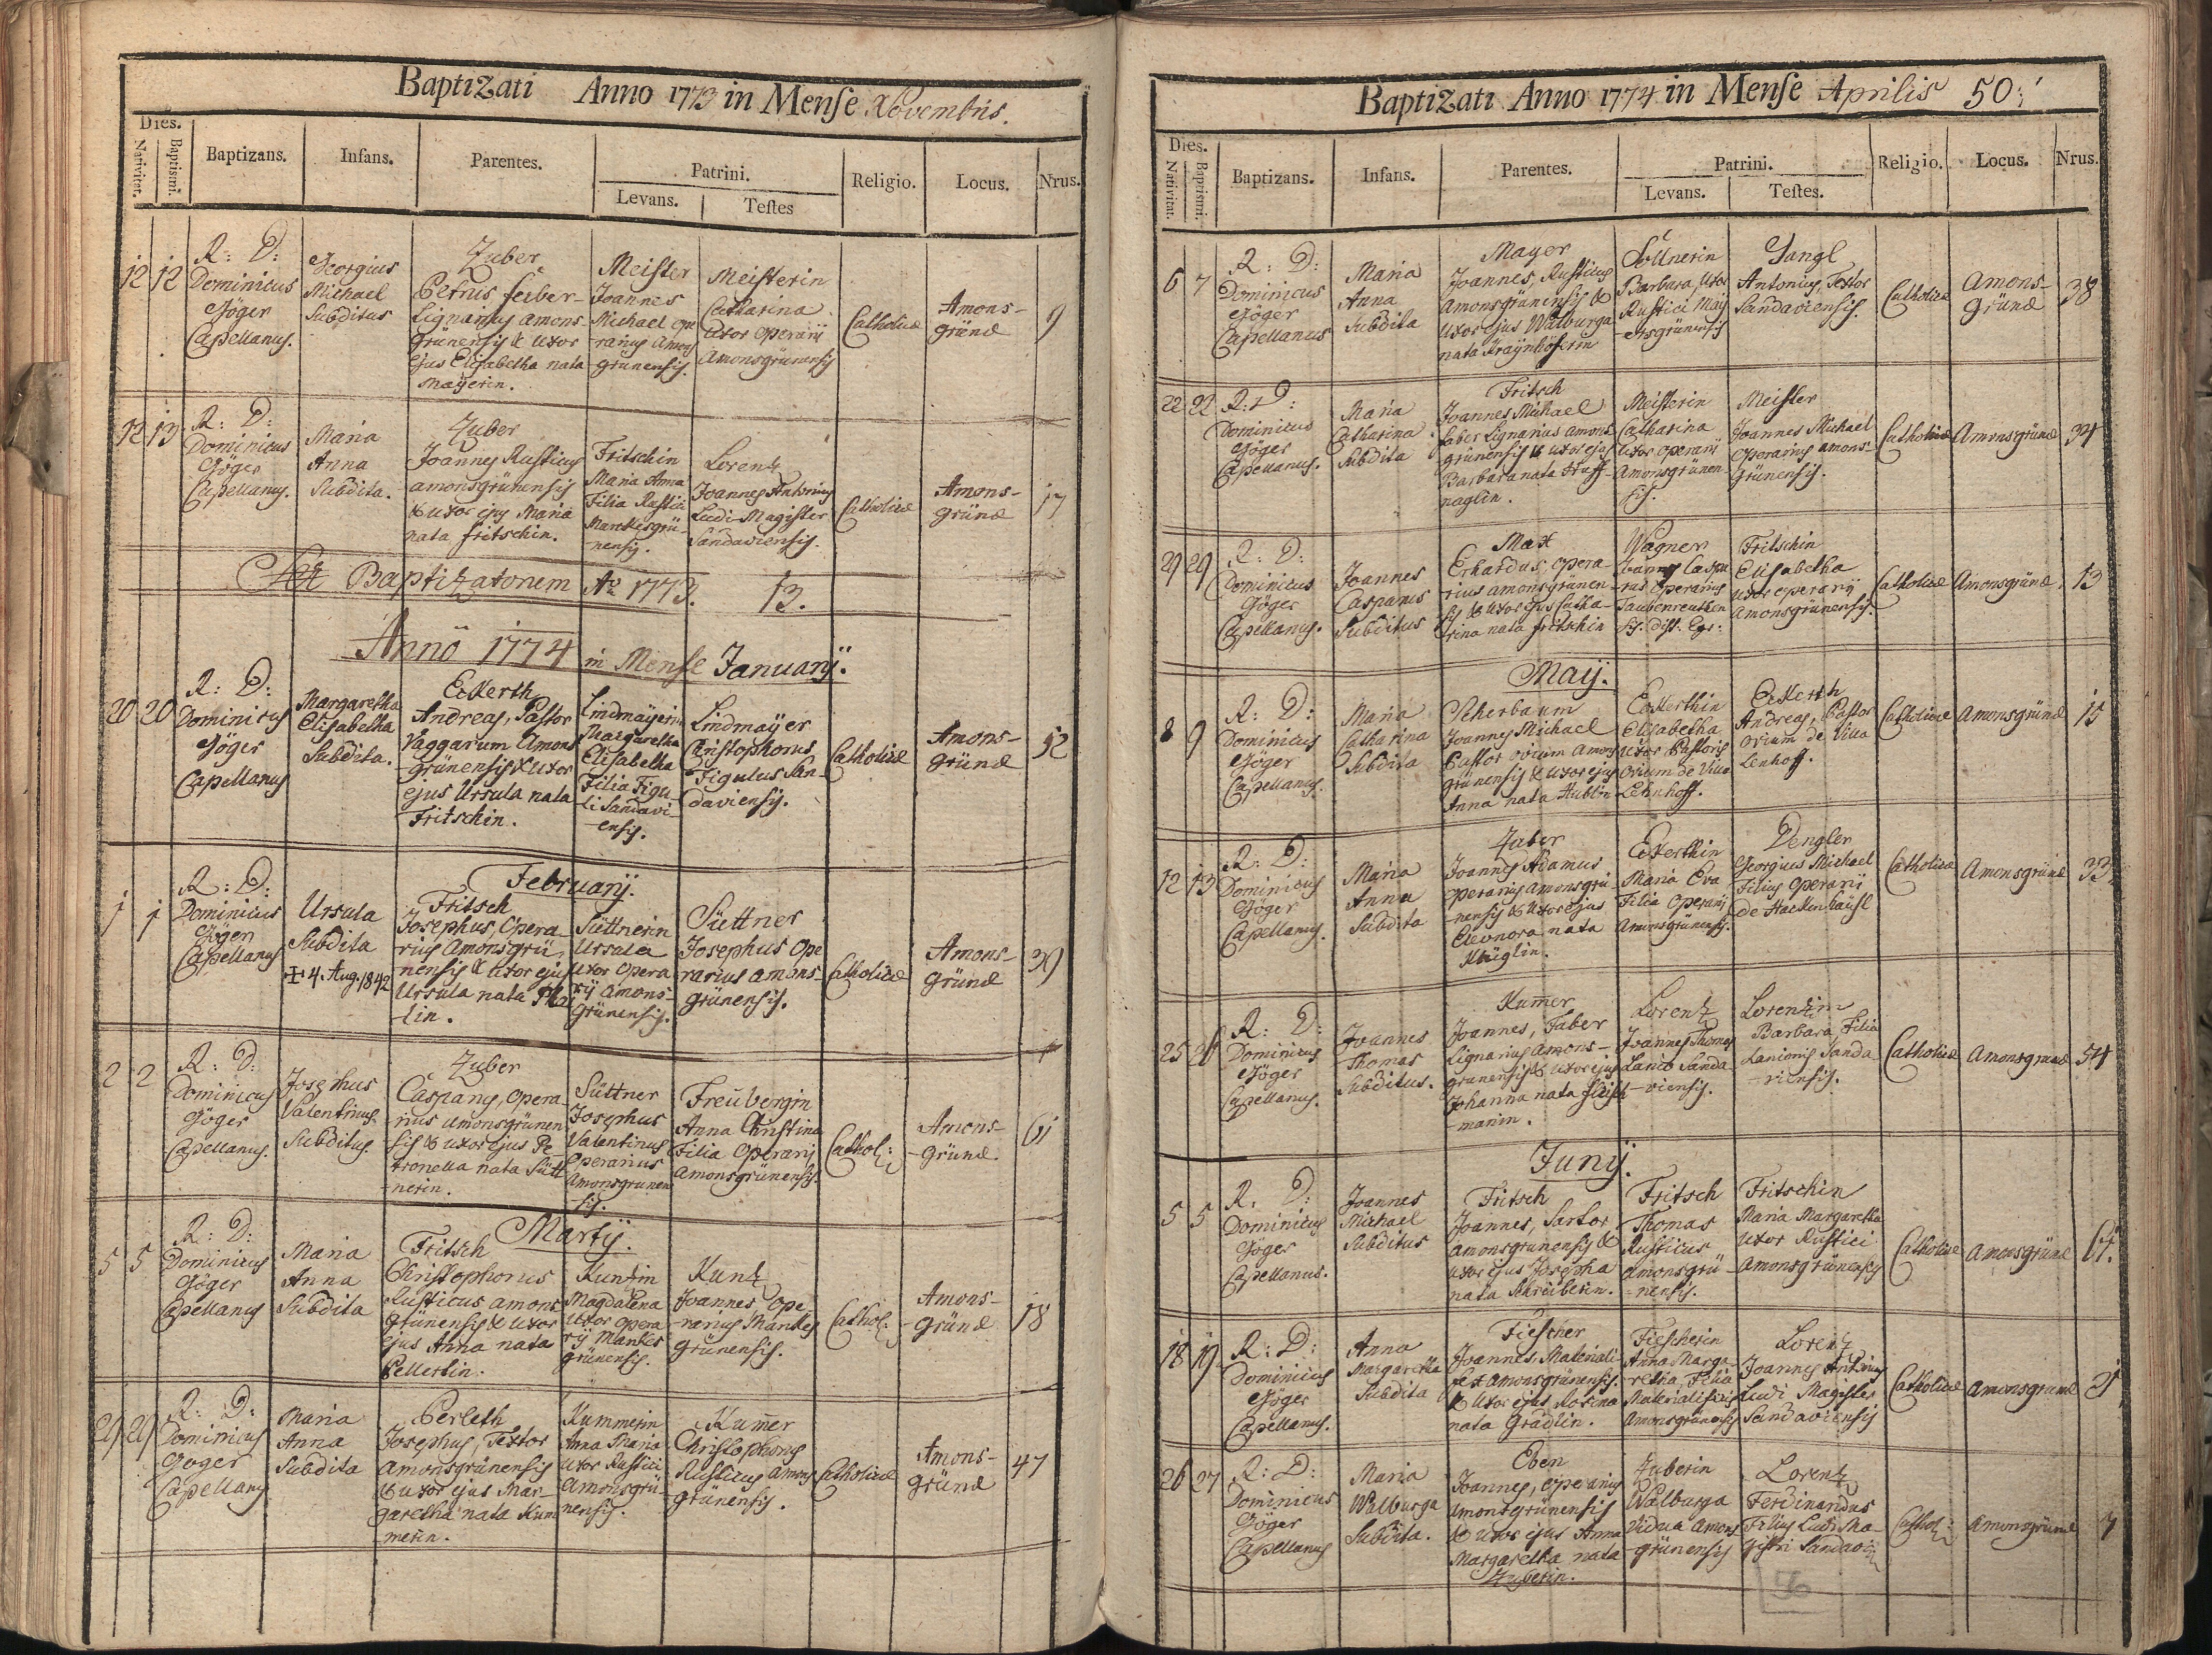 Baptizati Anno 1773 in Mense Novembris.
Dies.
Nativitat.
Baptismi.
Baptizans.
Infans.
Parentes.
Patrini.
Levans.
Testes
Religio.
Locus.
Nrus.
12 12
R: D:
Dominicus
Göger
Capellanus.
Georgius
Michael
Subditus
Zuber
Petrus faber-
Lignarius amons-
grünensis & uxor
ejus Elisabetha nata
Mayerin.
Meister
Joannes
Michael ope
-rarius Amons
grünensis.
Meisterin
Catharina
uxor operarij
Amonsgrünensis
Catholicae
Amons-
gründ
9
12 13
R: D:
Dominicus
Göger
Capellanus.
Maria
Anna
Subdita.
Zuber
Joannes Rusticus
amonsgrünensis
& uxor ejus Maria
nata fritschin.
Fritschin
Maria Anna
Filia Rustici
Markesgrü-
-nensis.
Lorentz
Joannes Antonius
Ludi-Magister
Sandaviensis.
Catholicae
Amons-
gründ
17
Baptizatonem Ao 1773. 13.
Anno 1774 in Mense Januarij.
20 20
R: D:
Dominicus
Göger
Capellanus
Margaretha
Elisabetha
Subdita.
Eckerth
Andreas, Pastor
Vaggarum Amons
-grünensis & uxor
ejus Ursula nata
Fritschin.
Lindmayerin
Margaretha
Elisabetha
Filia Figu-
li Sandavi-
-ensis.
Lindmayer
Christophorus
Figulus San-
daviensis.
Catholicae
Amons-
gründ
52
Februarij.
1 1
R: D:
Dominicus
Göger
Capellanus
Ursula
Subdita
+ 4. Aug. 1842
Fritsch
Josephus, Opera-
rius Amonsgrü-
nensis & uxor ejus
Ursula nata
-lin.
Süttnerin
Ursula
uxor opera
rij amons-
grünensis.
Süttner
Josephus Ope
rarius amons-
grünensis.
Catholicae
Amons-
gründ
39
2 2
R: D:
Dominicus
Göger
Capellanus.
Josephus
Valentinus
Subditus.
Zuber
Casparus, opera-
rius amonsgrünen
sis & uxor ejus Pe-
tronella nata Sütt
-nerin.
Süttner
Josephus
Valentinus
Operarius
Amonsgrunen
sis.
Freübergin
Anna Christina
Filia Operarij
Amonsgrünensis.
Cathol:
Amons-
-gründ.
61
Martij.
5 5
R: D:
Dominicus
Göger
Capellanus
Maria
Anna
Subdita
Fritsch
Christophorus
Rusticus amons
grünensis & uxor
ejus Anna nata
Pellertin.
Kuntzin
Magdalena
uxor opera
rij Markes
grünensis.
Kuntz
Joannes, ope-
-rarius Markes
grünensis.
Cathol:
Amons-
-gründ
18
29 29
R: D:
Dominicus
Göger
Capellanus
Maria
Anna
Subdita
Perleth
Josephus, Textor
Amonsgrünensis
& uxor ejus Mar-
garetha nata Kum
merin.
Kummerin
Anna Maria
uxor Rustici
Amonsgrü-
nensis.
Kumer
Christophorus
Rusticus Amons
grünensis.
Catholicae
Amons-
gründ
47
Baptizati Anno 1774 in Mense Aprilis 50.
Dies.
Nativitat.
Baptismi.
Baptizans.
Infans.
Parentes.
Patrini.
Levans.
Testes.
Religio.
Locus.
Nrus.
6 7
R: D:
Dominicus
Göger
Capellanus
Maria
Anna
Subdita
Mayer
Joannes, Rusticus
Amonsgrünensis &
uxor ejus Walburga
nata
Söllnerin
Barbara, uxor
Rustici Maij
-ersgrünensis
Zangl
Antonius, Textor
Sandaviensis.
Catholicae
Amons-
gründ
38
22 22
R: D:
Dominicus
Göger
Capellanus.
Maria
Catharina
Subdita
Fritsch
Joannes Michael
faber Lignarius amons
grünensis & uxor ejus
Barbara nata Stuff-
naglin.
Meisterin
Catharina
uxor operarij
Amonsgrünen-
sis.
Meister
Joannes Michael
operarius amons-
grünensis.
Catholicae
Amonsgründ
34
29 29
R: D:
Dominicus
Göger
Capellanus.
Joannes
Casparus
Subditus
Max
Erhardus, opera-
rius amonsgrünen-
sis & uxor ejus Catha-
rina nata fritschin
Wagner
Joannes Caspa
-rus operarius
Taubenreuthen
sis. dist. Egr:
Fritschin
Elisabetha
uxor operarij
Amonsgrünensis.
Catholicae
Amonsgründ
13
Maij.
8 9
R: D:
Dominicus
Göger
Capellanus.
Maria
Catharina
Subdita
Scherbaum
Joannes Michael
Pastor ovium amons
grünensis & uxor ejus
Anna nata Hublin
Eckerthin
Elisabetha
uxor Pastoris
Ovium de Villa
Lehnhoff.
Eckerth
Andreas, Pastor
Ovium de Villa
Lenhoff.
Catholicae
Amonsgründ
15
12 13
R: D:
Dominicus
Göger
Capellanus.
Maria
Anna
Subdita
Zuber
Joannes Adamus
operarius amonsgrü-
-nensis & uxor ejus
Eleonora nata
Küglin.
Eckerthin
Maria Eva
Filia Operarij
Amonsgrünensis.
Dengler
Georgius Michael
Filius Operarij
de Hackenhäusl
Catholicae
Amonsgründ
33
25 26
R: D:
Dominicus
Göger
Capellanus.
Joannes
Thomas
Subditus.
Kumer
Joannes, Faber
Lignarius amons-
grunensis & uxor ejus
Johanna nata fleisch
-manin.
Lorentz
Joannes Thomas
Lanio Sanda
-viensis.
Lorentzin
Barbara, Filia
Lanionis Sanda
-viensis.
Catholicae
Amonsgründ
54
Junij.
5 5
R: D:
Dominicus
Göger
Capellanus.
Joannes
Michael
Subditus
Fritsch
Joannes, Sartor
amonsgrunensis &
uxor ejus Josepha
nata Schreiberin.
Fritsch
Thomas
Rusticus
Amonsgrü-
-nensis.
Fritschin
Maria Margaretha
uxor Rustici
Amonsgrünensis
Catholicae
Amonsgründ
61.
18 19
R: D:
Dominicus
Göger
Capellanus.
Anna
Margaretha
Subdita
Fiescher
Joannes, Materiali-
fex amonsgrünensis.
& uxor ejus Rosina
nata Grädlin.
Fiescherin
Anna Marga-
retha, Filia
Materialificis
Amonsgrünensis
Lorentz
Joannes Antonius
Ludi Magister
Sandaviensis
Catholicae
Amonsgrund
21
26 27
R: D:
Dominicus
Göger
Capellanus
Maria
Walburga
Subdita.
Eben
Joannes, operarius
Amonsgrünensis
& uxor ejus Anna
Margaretha nata
Zuberin.
Zuberin
Walburga
Vidua Amons
-grünensis
Lorentz
Ferdinandus
Filius Ludi Ma-
gistri Sandavi
Cathol:
Amonsgründ
7